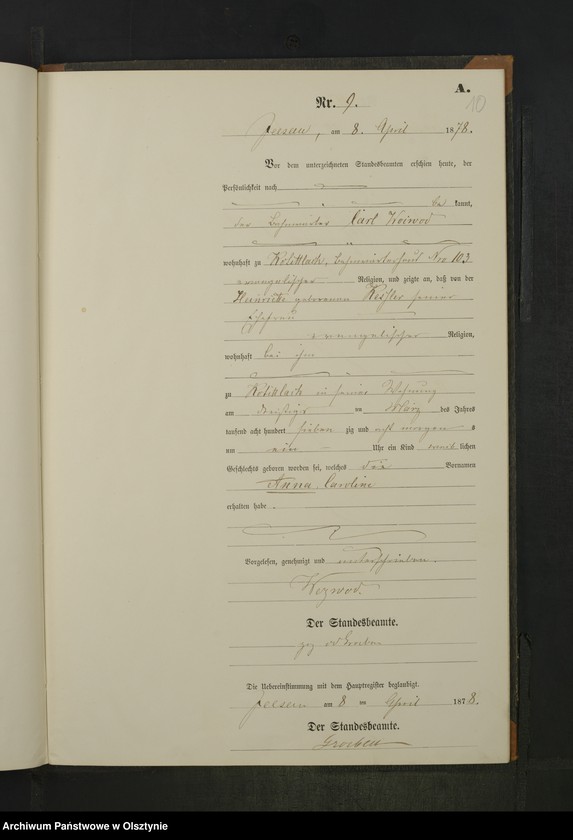 A.
10
Nr. 9.
Jeesau, am 8. April 1878.
Vor dem unterzeichneten Standesbeamten erschien heute, der
Persönlichkeit nach
be kannt,
der Bahnwärter Carl Woiwod
wohnhaft zu Kolittlack, Bahnwärterhaus Nro 103
evangelischer Religion, und zeigte an, daß von der
Henriette geborenen Keßler seiner
Ehefrau
evangelischer Religion,
wohnhaft bei ihm
zu Kolittlack in seiner Wohnung
am dreißigs ten März des Jahres
tausend acht hundert sieben zig und acht morgens
um ein Uhr ein Kind weiblichen
Geschlechts geboren worden sei, welches die Vornamen
Anna Caroline
erhalten habe.
Vorgelesen, genehmigt und unterschrieben.
Woywod.
Der Standesbeamte.
gez
Die Uebereinstimmung mit dem Hauptregister beglaubigt.
Jeesau am 8 ten April 1878.
Der Standesbeamte.
Groeben
Archiwum Państwowe w Olsztynie